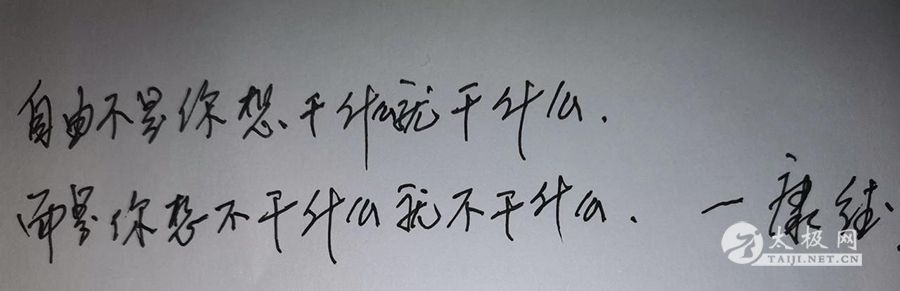 自由不是你想干什么就干什么.
而是你想不干什么就不干什么. 一康德
太极网
TAIJI.NET.CN